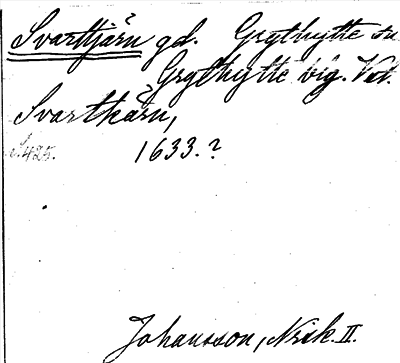 Svarttjärn gd. Grythytte sn
Grythytte bsg. Vstm.
Svartkärn,
s. 425. 1633.?
Johansson, Nrik. II.